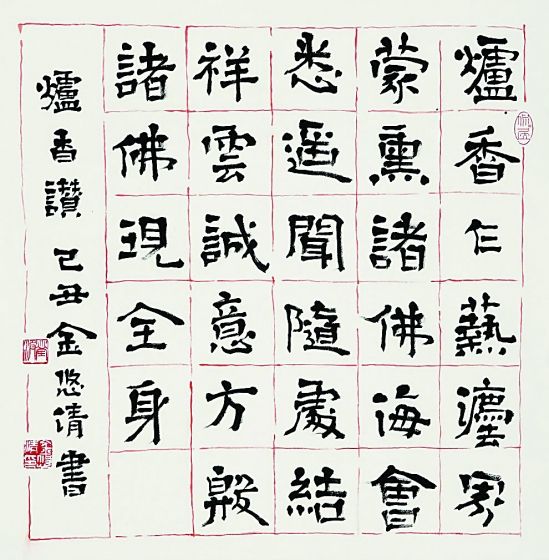 爐香乍爇灋界
蒙熏諸佛海會
悉遥聞隨處結
祥雲誠意方殷
諸佛現全身
爐香讚 己丑 金悠清書